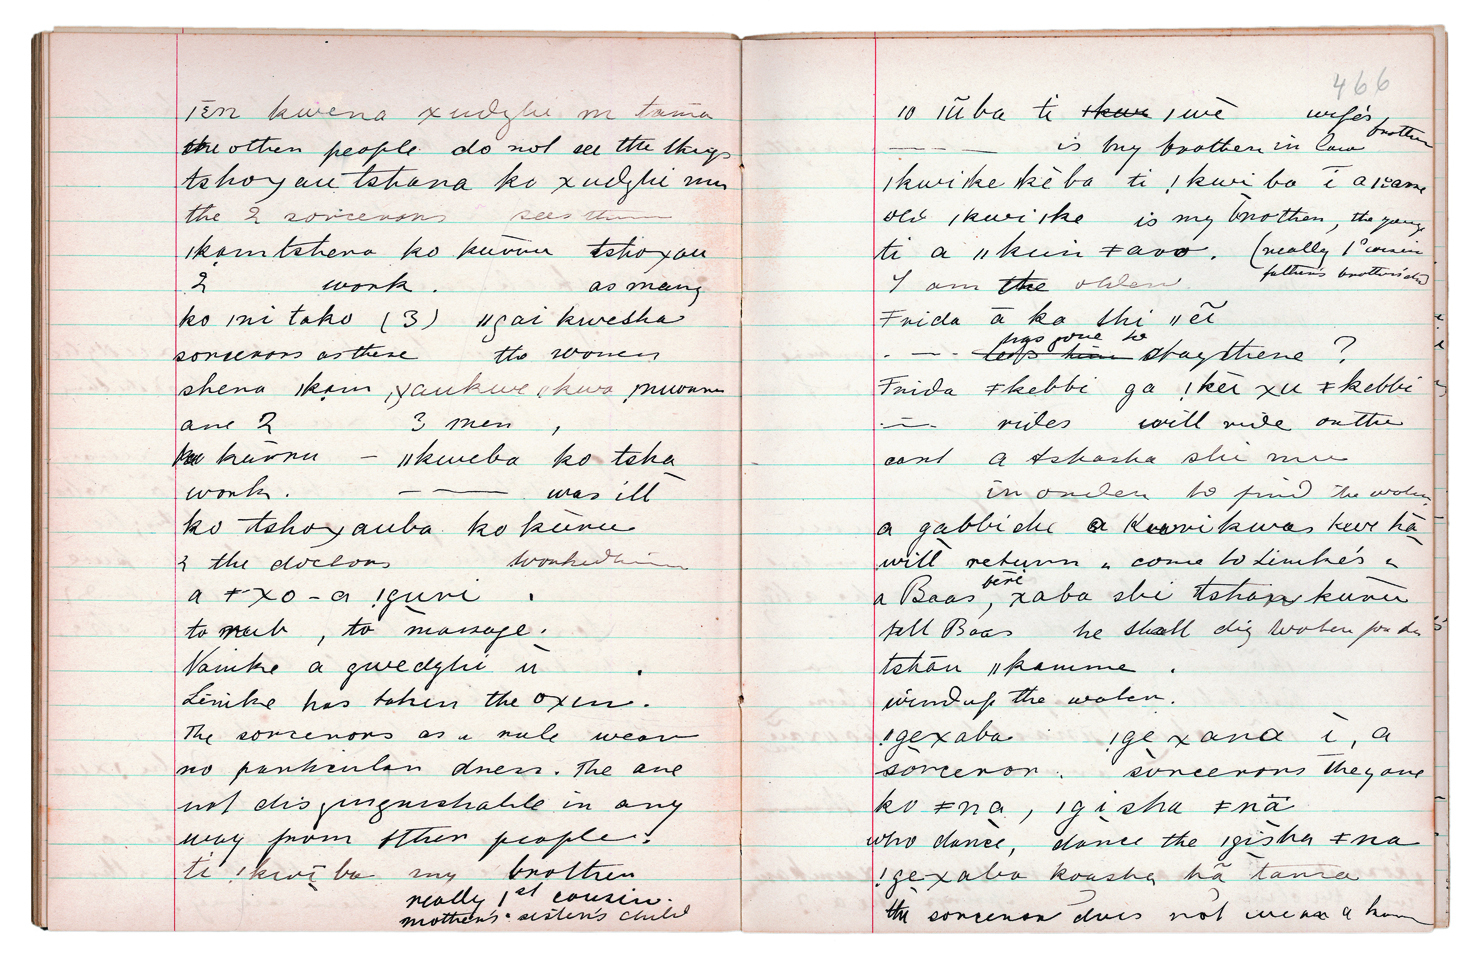 ꞁēn kwena xudzhi m tama
the other people do not see the things
tshoxau tshana ko xudzhi mu
the 2 sorcerors sees them
ꞁkam tshena ko kūrru tshoxau
2 work. as many
ko ꞁni tako (3) ꞁꞁgai kwesha
sorcerors as there the women
shena ꞁkam, xaukwe ꞁkwa
are 2 3 men,
ko kūrru – ꞁꞁkweba ko tsha
work. — — was ill
ko tshoxauba ko kūru
2 the doctors worked him
a ǂxo-a !guri .
to rub, to massage.
Nauke a gwedzhi ū .
Leinke has taken the oxen.
The sorcerors as a rule wear
no particular dress. The are
not distinguishable in any
way from other people.
ti !kwī ba my brother
really 1st cousin.
mother's sister's child
466
ꞁo ꞁūba ti ꞁkwe ꞁwē wife's brother
— — — is my brother in law
ꞁkwike kēba ti !kwi ba ī
old ꞁkwi ꞁke is my brother, the young
ti a ꞁꞁkuin ǂaro. (really 1st cousin
I am the older father's brother's child)
Frida ā ka shi ꞁꞁēī
. — . has gone to stay there ?
Frida ǂkebbi ga !kēi xu ǂkebbi
. — . rides will ride on the
cart a tshasha shi mu
in order to find the water,
a gabbi she a kwe hā
will return & come to Leinke's &
a Baas, beri xaba shi tshan kūrū
tell Baas he shall dig water for
tshān ꞁꞁkamme .
wind up the water.
!gexaba !ge xana ī, a
sorceror. sorcerors they are
ko ǂna, ꞁgisha ǂnā
who dance, dance the ꞁgisha ǂna
!gexaba koasha hā tama
the sorceror does not wear a horn